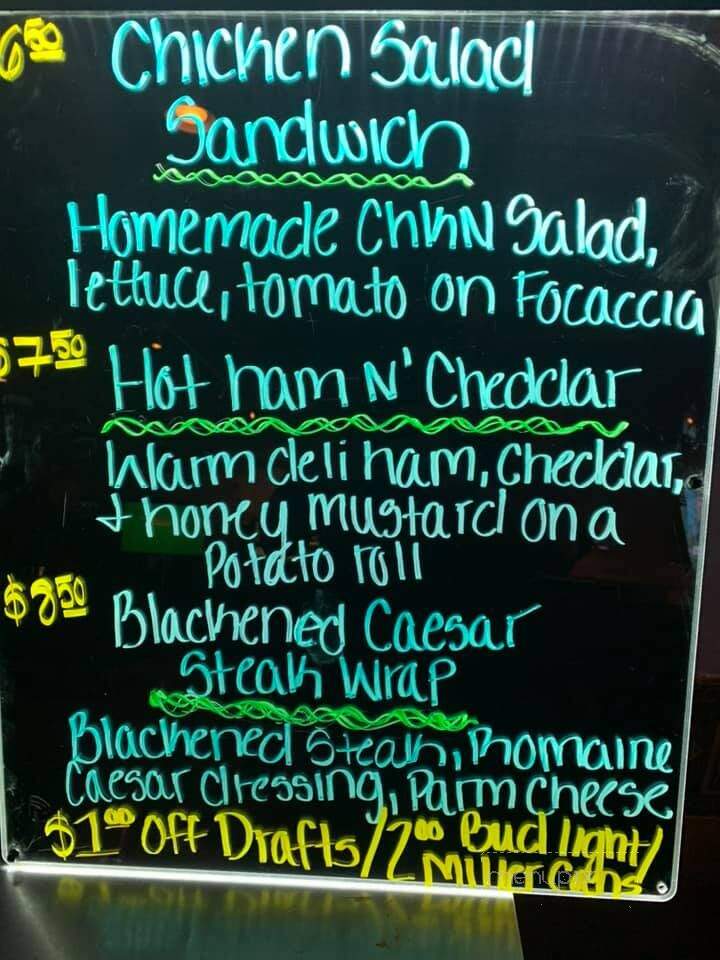 6.50 Chicken Salad
Sandwich
Homemade Chkn Salad,
lettuce, tomato on Focaccia
$7.50 Hot ham N' Cheddar
Warm deli ham, Cheddar,
+ honey mustard on a
Potato roll
$8.50 Blackened Caesar
Steak Wrap
Blackened Steak, Romaine
Caesar dressing, Parm Cheese
$1.00 Off Drafts/2.00 Bud light/
Miller